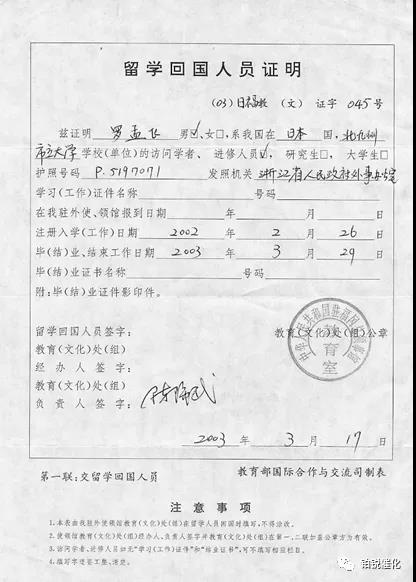 留学回国人员证明
(03)日福教(文)证字045号
兹证明 罗孟飞 男☑、女□,系我国在 日本 国,北九州
市立大学 学校(单位)的访问学者、进修人员☑,研究生□,大学生□
护照号码 P.5197071 发照机关 浙江省人民政府外事办公室
学习(工作)证件名称 号码
在我驻外使、领馆报到日期 年 月 日
注册入学(工作)日期 2002 年 2 月 26 日
毕(结)业、结束工作日期 2003 年 3 月 29 日
毕(结)业证书名称 号码
附:毕(结)业证件影印件。
留学回国人员签字: 教育(文化)处(组)公章
教育(文化)处(组)
经办人签字:
教育(文化)处(组)
负责人签字:
教育室
2003 年 3 月 17 日
第一联:交留学回国人员 教育部国际合作与交流司制表
注意事项
1.本表由我驻外使领馆教育(文化)处(组)在留学人员回国时填写,不得涂改。
2.使领馆教育(文化)处(组)经办人、负责人签字并教育(文化)处(组)在第一、二联加盖公章方为有效。
3.访问学者、进修人员如无"学习(工作)证件"和"结业证书",可不填写相应栏目。
4.填写字迹要工整、清楚。
铂锐催化